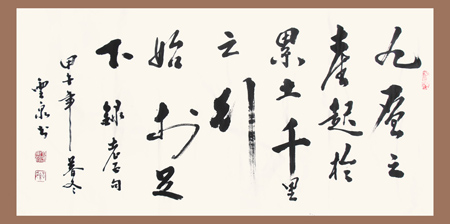 九層之
臺起於
累土千里
之行
始於足
下 錄老子句
甲午年暮冬
雲泉书